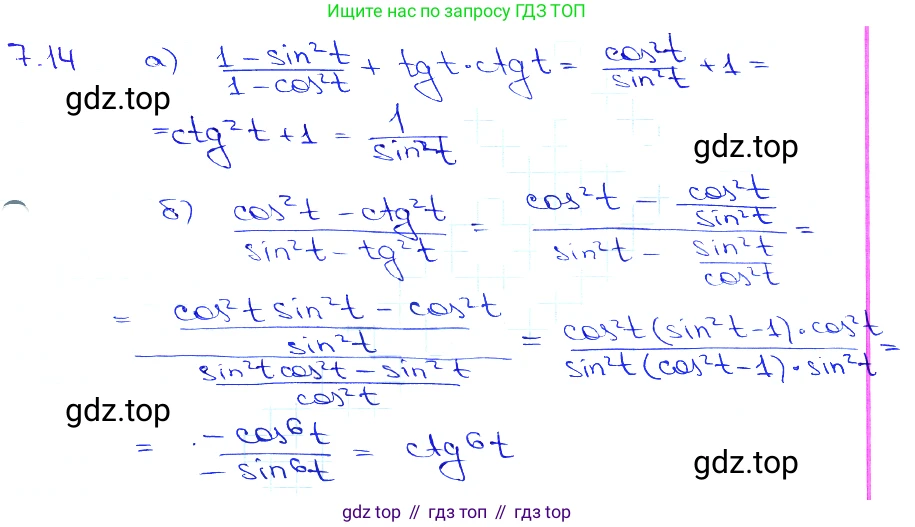 Ищите нас по запросу ГДЗ ТОП
7.14 а) (1 - sin²t)/(1 - cos²t) + tg t · ctg t = cos²t/sin²t + 1 =
gdz.top
= ctg²t + 1 = 1/sin²t
gdz.top
б) (cos²t - ctg²t)/(sin²t - tg²t) = (cos²t - cos²t/sin²t)/(sin²t - sin²t/cos²t) =
= ((cos²t sin²t - cos²t)/sin²t)/((sin²t cos²t - sin²t)/cos²t) = (cos²t (sin²t - 1) · cos²t)/(sin²t (cos²t - 1) · sin²t) =
gdz.top
= (-cos⁶t)/(-sin⁶t) = ctg⁶t
gdz.top
gdz.top // гдз топ // гдз.топ